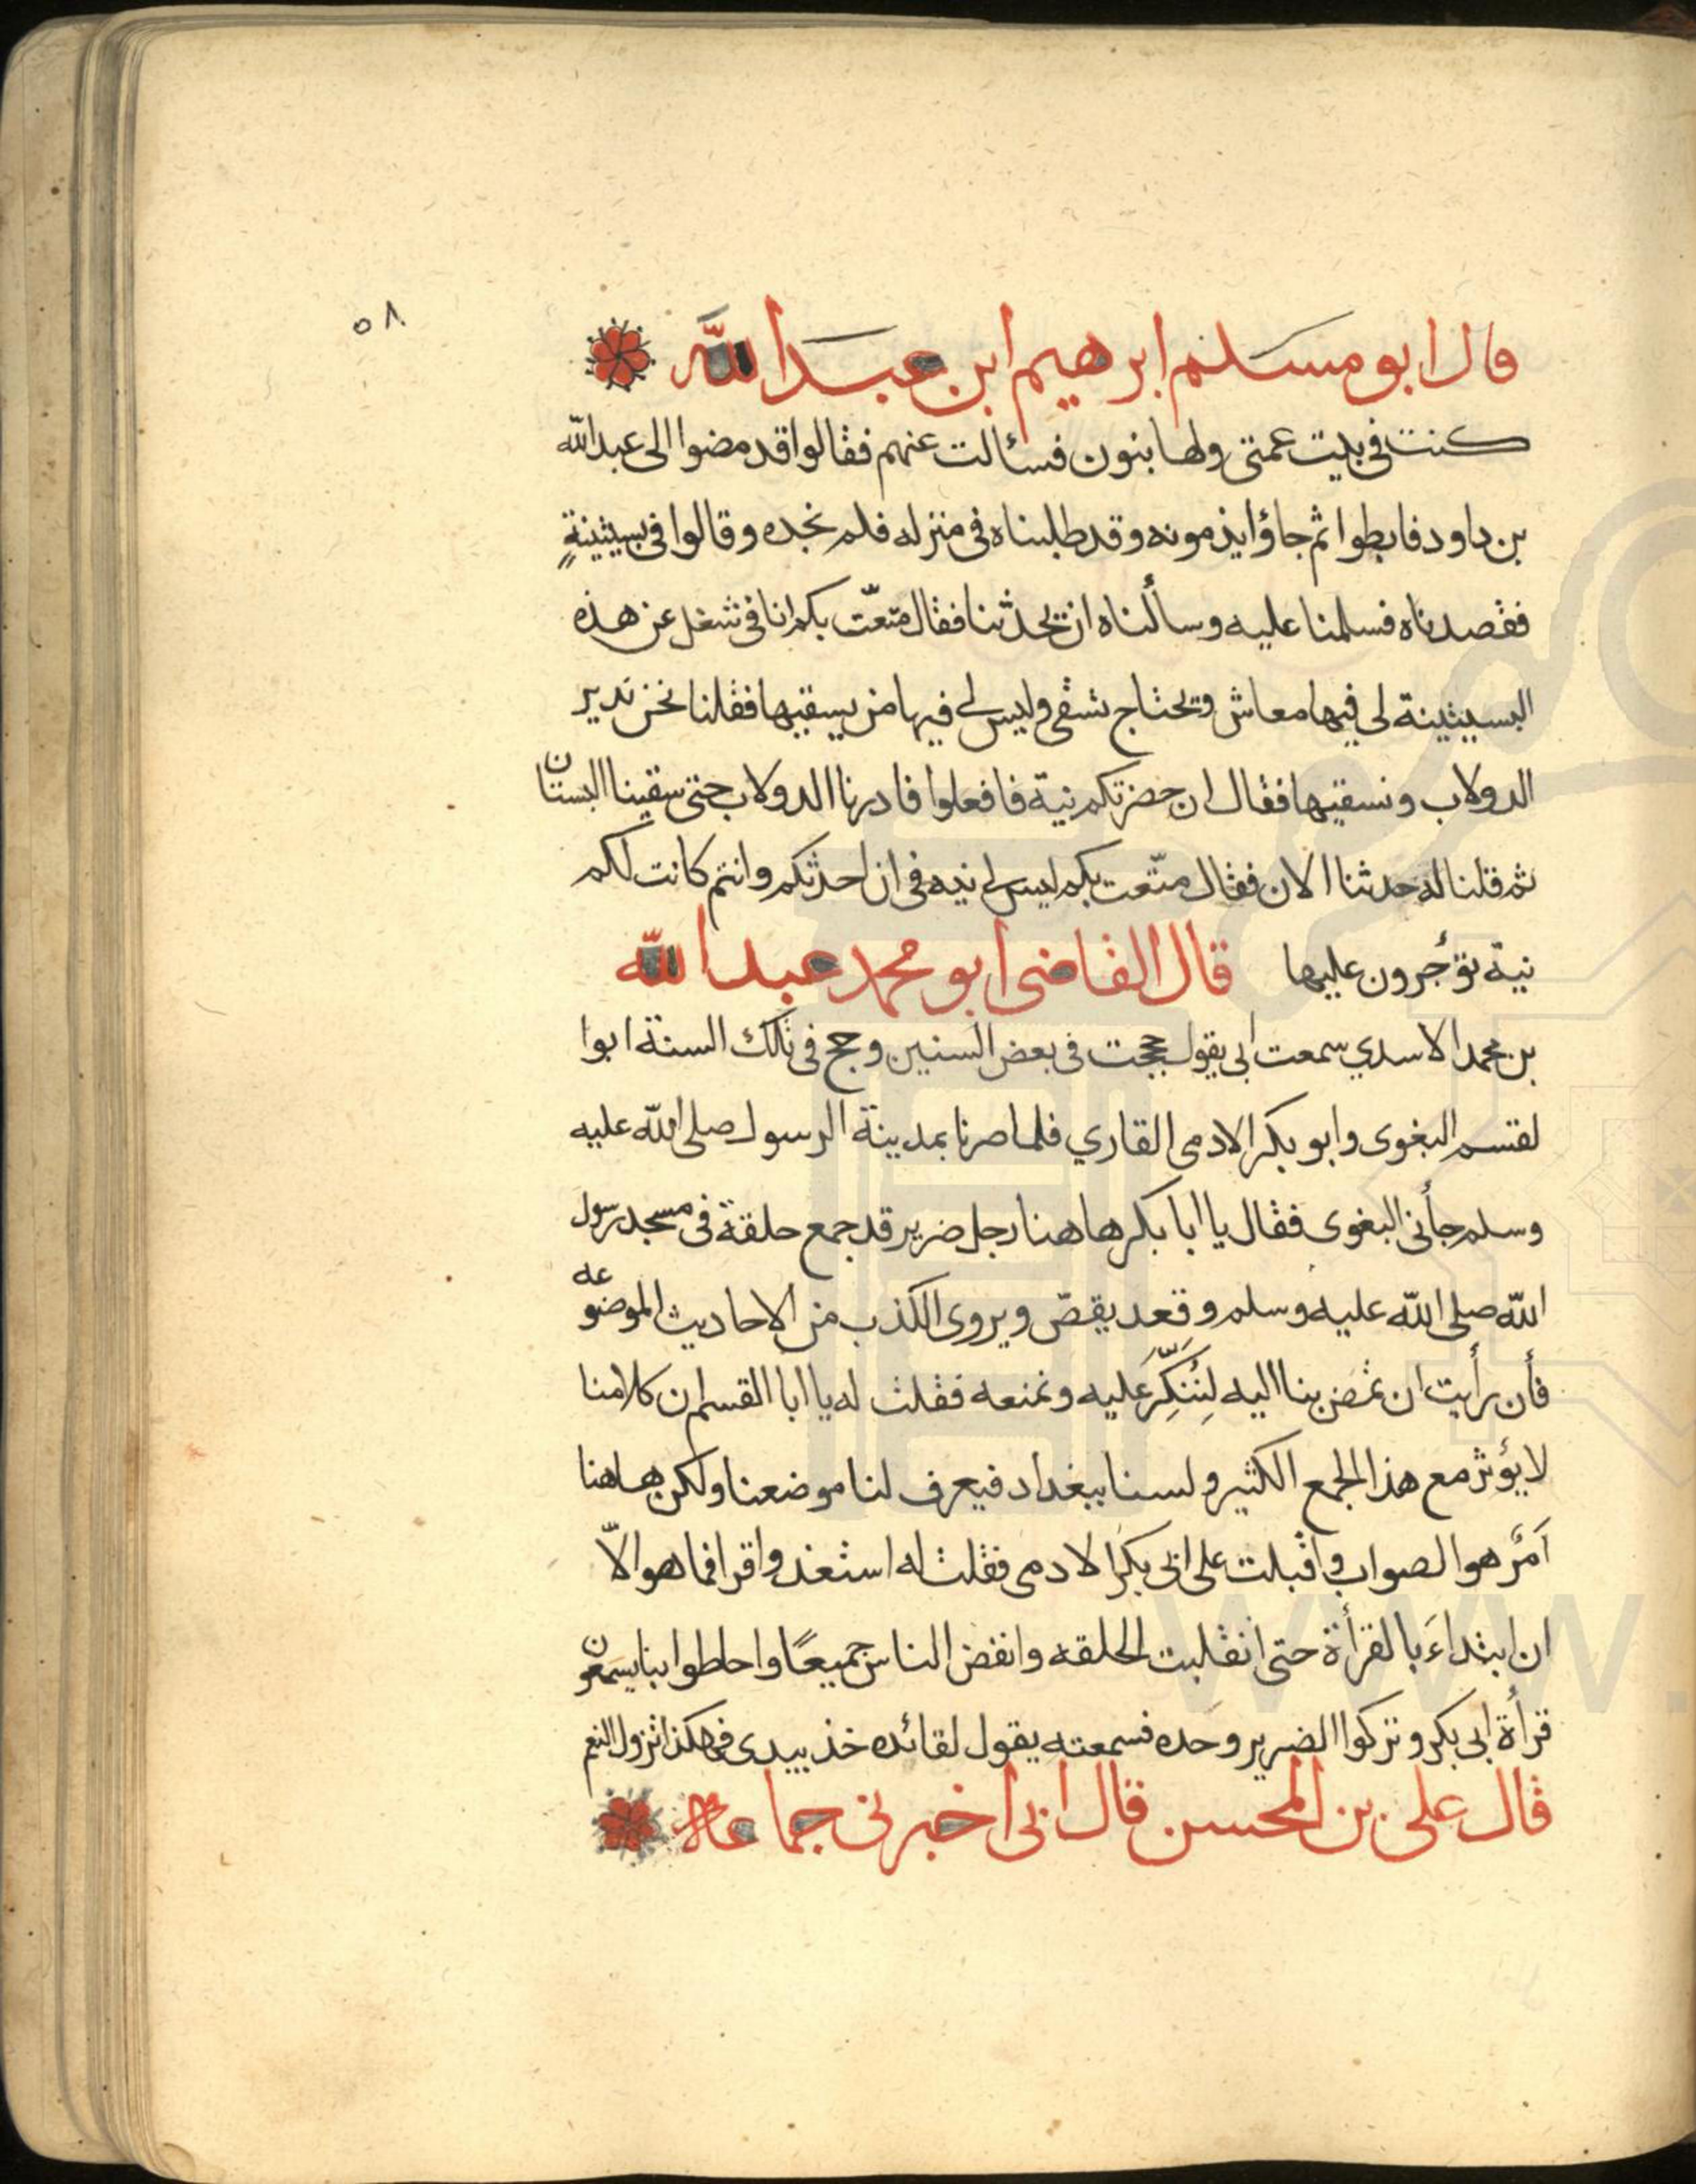 ٥٨
قال ابو مسلم ابرهيم ابن عبد الله
كنت فى بيت عمتى ولها بنون فسألت عنهم فقالوا قد مضوا الى عبد الله
بن داود فابطوا ثم جاؤا يذمونه وقد طلبناه فى منزله فلم نجده وقالوا فى بسيتينةٍ
فقصدناه فسلمنا عليه وسألناه ان يحدثنا فقال متعّت بكم انا فى شغل عن هذه
البسيتينة لى فيها معاش وتحتاج تسقى وليس لى فيها من يسقيها فقلنا نحن ندير
الدولاب ونسقيها فقال ان حضرتكم نية فافعلوا فادرنا الدولاب حتى سقينا البستان
ثم قلنا له حدثنا الان فقال متّعت بكم ليس لى نيه فى ان احدثكم وانتم كانت لكم
نية تؤجرون عليها قال القاضى ابو محمد عبد الله
بن محمد الاسدي سمعت ابى يقول حججت فى بعض السنين وحج فى تلك السنة ابوا
لقسم البغوى وابو بكر الادمى القاري فلما صرنا بمدينة الرسول صلى الله عليه
وسلم جأنى البغوى فقال يا ابا بكر هاهنا رجل ضرير قد جمع حلقة فى مسجد رسول
الله صلى الله عليه وسلم وقعد يقصّ ويروى الكذب من الاحاديث الموضوعه
فأن رأيت ان تمض بنا اليه لِنُنَكِّرَ عَليه ونمنعه فقلت له يا ابا القسم ان كلامنا
لا يؤثر مع هذا الجمع الكثير ولسنا ببغداد فيعرف لنا موضعنا ولكن هاهنا
أمرٌ هو الصواب واقبلت على ابى بكر الادمى فقلت له استعذ واقرا فما هو الاّ
ان ابتداءَ بالقرأة حتى انقلبت الحلقه وانفض الناس جميعًا واحاطوا بنا يسمعون
قرأة ابى بكر وتركوا الضرير وحده فسمعته يقول لقائده خذ بيدى فهكذا تزول النعم
قال على بن المحسن قال ابى اخبرنى جماعة